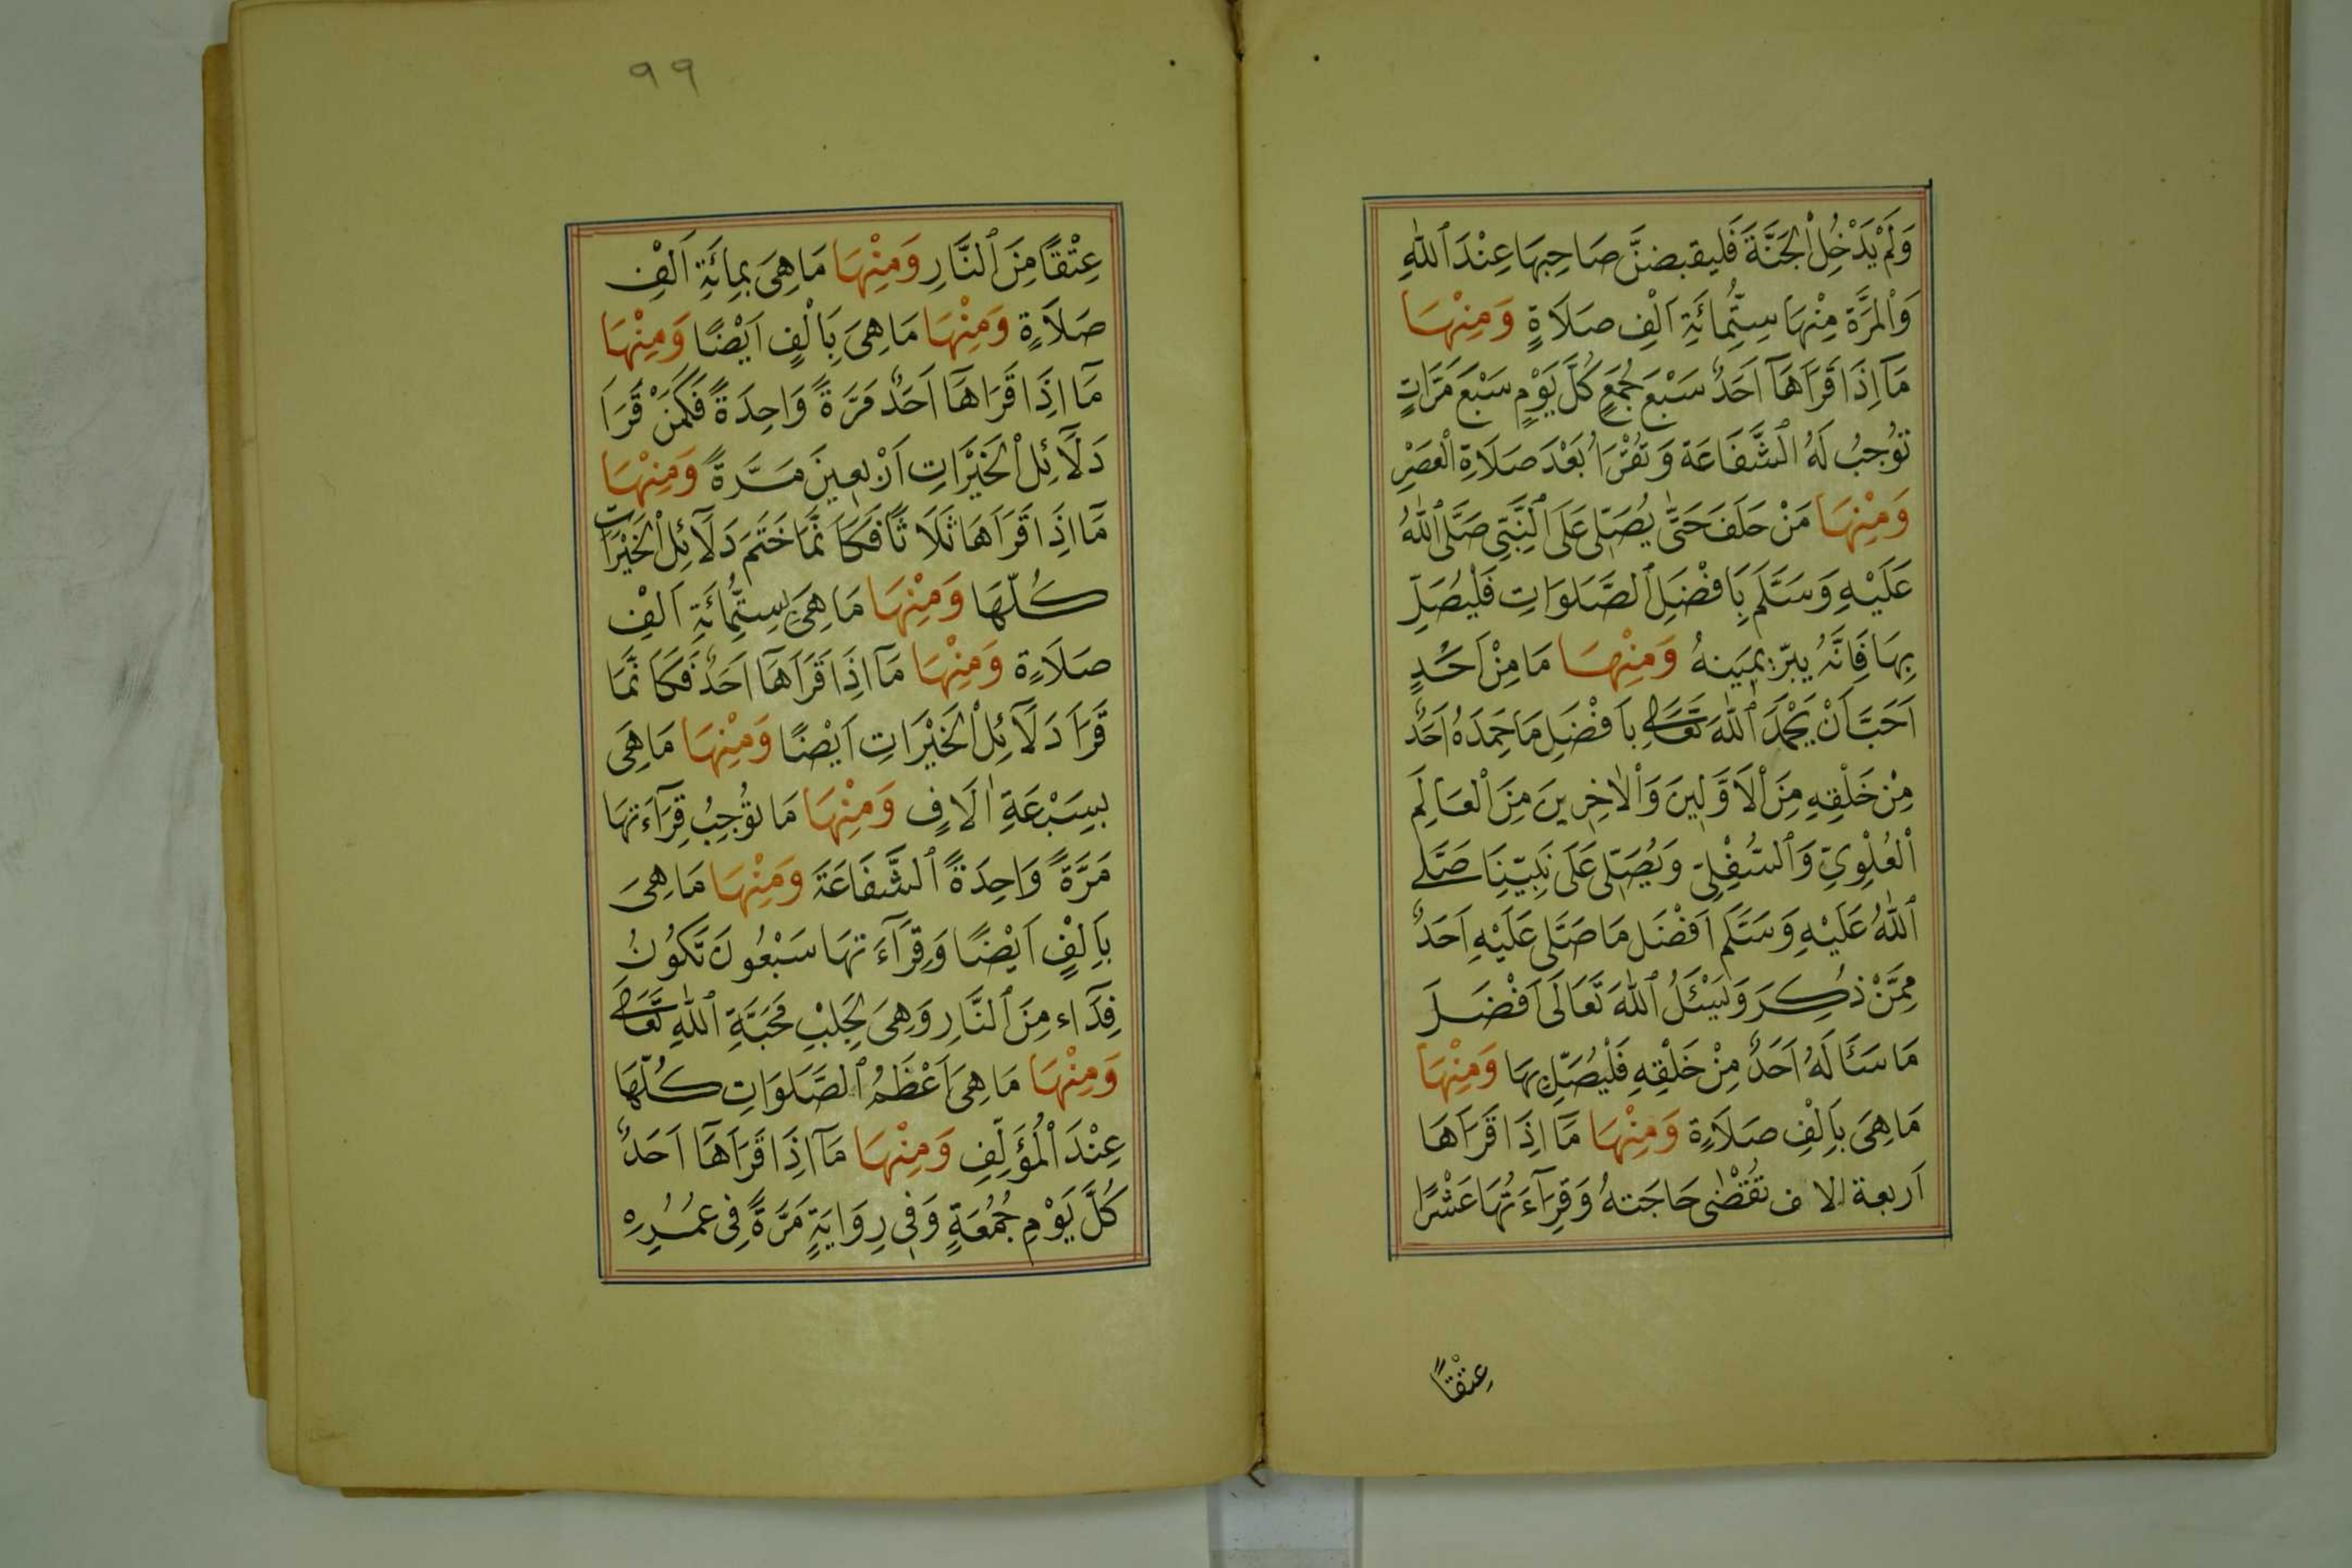 وَلَمْ يَدْخُلِ الْجَنَّةَ فَلیقبضنَّ صَاحِبِهَا عِنْدَ ٱللّٰهِ
وَالْمَرَّةَ مِنْهَا سِتُّمِائَةِ اَلْفِ صَلَاةٍ وَمِنْهَا
مَآ اِذَا قَرَاَهَآ اَحَدٌ سَبْعَ جُمَعٍ كُلَّ يَوْمٍ سَبْعَ مَرَّاتٍ
تُوجِبُ لَهُ الشَّفَاعَة وَتُقْرَاُ بَعْدَ صَلَاةِ الْعَصْرِ
وَمِنْهَا مَنْ حَلَفَ حَتَّى يُصَلِّى عَلَى النَّبِىِّ صَلَّى ٱللّٰهُ
عَلَيْهِ وَسَلَّم بِاَفْضَلِ ٱلصَّلَوَاتِ فَلْيُصَلِّ
بِهَا فَاِنَّهُ يبرّ بِمَينهُ وَمِنْهَا مَا مِنْ اَحَدٍ
اَحَبَّ اَنْ يَحْمَدَ ٱللّٰهَ تَعَالٰى بِاَفْضَلِ مَا حَمِدَهُ اَحَدٌ
مِنْ خَلْقِهِ مِنَ الْاَوَّلِينَ وَالْاٰخِرِينَ مِنَ الْعَالَمِ
الْعُلْوِىِّ وَٱلسُّفْلِىِّ وَيُصَلِّى عَلَى نَبِيِّنَا صَلَّى
ٱللّٰهُ عَلَيْهِ وَسَلَّم اَفْضَل مَا صَلَّى عَلَيْهِ اَحَدٌ
مِمَّنْ ذُكِرَ وَيَسْئَلُ ٱللّٰهَ تَعَالَى اَفْضَلَ
مَا سَئَالَهُ اَحَدٌ مِنْ خَلْقِهِ فَلْيُصَلِّ بِهَا وَمِنْهَا
مَا هِىَ بِاَلْفِ صَلَاةٍ وَمِنْهَا مَآ اِذَا قَرَاَهَا
اَربعة الاف تُقْضٰى حَاجَتهُ وَقِرَآءَتُهَا عَشْرًا
عِتْقًا
٩٩
عِتْقًا مِنَ ٱلنَّارِ وَمِنْهَا مَا هِىَ بِمِائَةِ اَلْفِ
صَلَاةٍ وَمِنْهَا مَا هِىَ بِاَلْفٍ اَيْضًا وَمِنْهَا
مَآ اِذَا قَرَاَهَآ اَحَدٌ مَرَّةً وَاحِدَةً فَكَمَنْ قَرَاَ
دَلَآئِلَ الْخَيْرَاتِ اَرْبعِينَ مَرَّةً وَمِنْهَا
مَآ اِذَا قَرَاَهَا ثَلَاثًا فَكَاَنَّمَا خَتَمَ دَلَآئِلَ الْخَيْرَاتِ
كُلَّهَا وَمِنْهَا مَا هِىَ بِسِتِّمِائَةِ اَلْفِ
صَلَاةٍ وَمِنْهَا مَآ اِذَا قَرَاَهَآ اَحَدٌ فَكَاَنَّمَا
قَرَاَ دَلَآئِلَ الْخَيْرَاتِ اَيْضًا وَمِنْهَا مَا هِىَ
بِسَبْعَةِ اٰلَافٍ وَمِنْهَا مَا تُوجِبُ قِرَآءَتهَا
مَرَّةً وَاحِدَةً ٱلشَّفَاعَةَ وَمِنْهَا مَا هِىَ
بِاَلْفٍ اَيْضًا وَقِرَآءَتهَا سَبْعُونَ تَكُونُ
فِدَآء مِنَ ٱلنَّارِ وَهِىَ لِجَلْبِ مَحَبَّةِ ٱللّٰهِ تَعَالٰى
وَمِنْهَا مَا هِىَ اَعْظَمُ ٱلصَّلَوَاتِ كُلّهَا
عِنْدَ الْمُؤَلِّفِ وَمِنْهَا مَآ اِذَا قَرَاَهَآ اَحَدٌ
كُلَّ يَوْمِ جُمُعَةٍ وَفِى رِوَايَةٍ مَرَّةً فِى عُمُرِهِ